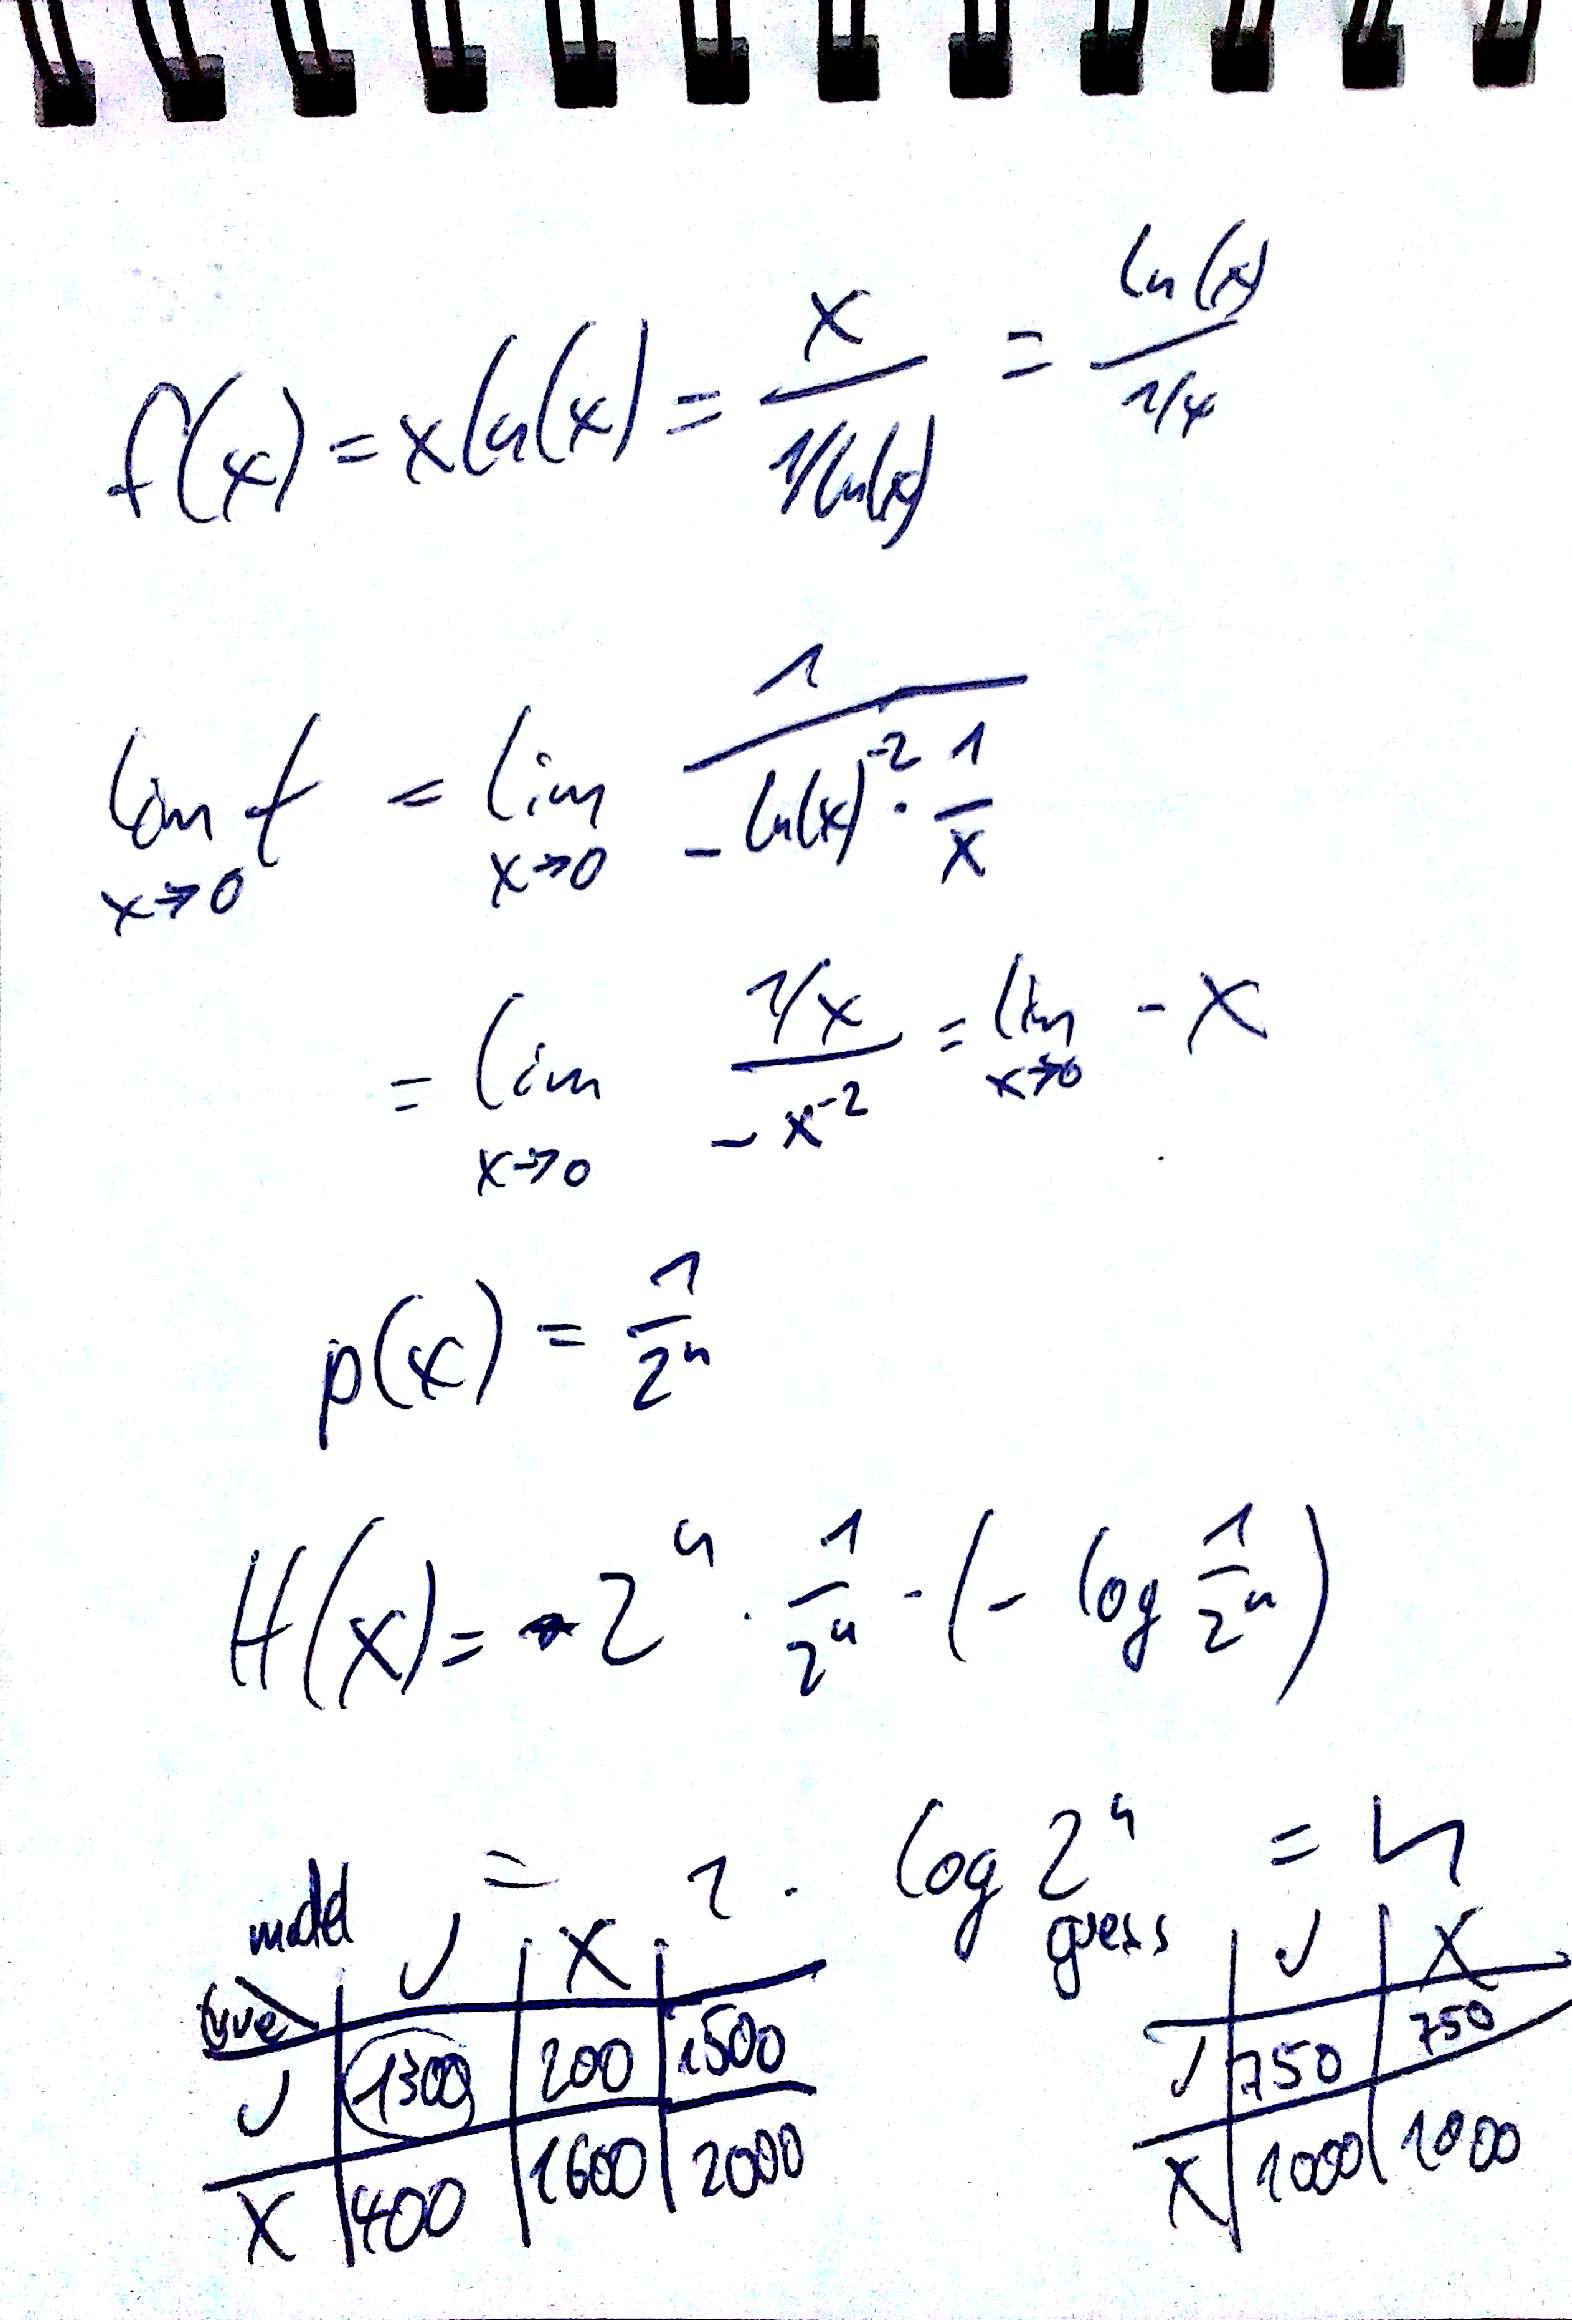 f(x) = x ln(x) = x / (1/ln(x)) = ln(x) / (1/x)
lim x→0 f = lim x→0 1 / (- ln(x)^-2 · 1/x)
= lim x→0 (1/x) / (- x^-2) = lim x→0 - x
p(x) = 1/2^n
H(x) = 2^n · 1/2^n · (- log 1/2^n)
= 1 · log 2^n = n
model ✓ X
true
✓ 1300 200 1500
X 400 1600 2000
guess ✓ X
✓ 750 750
X 1000 1000